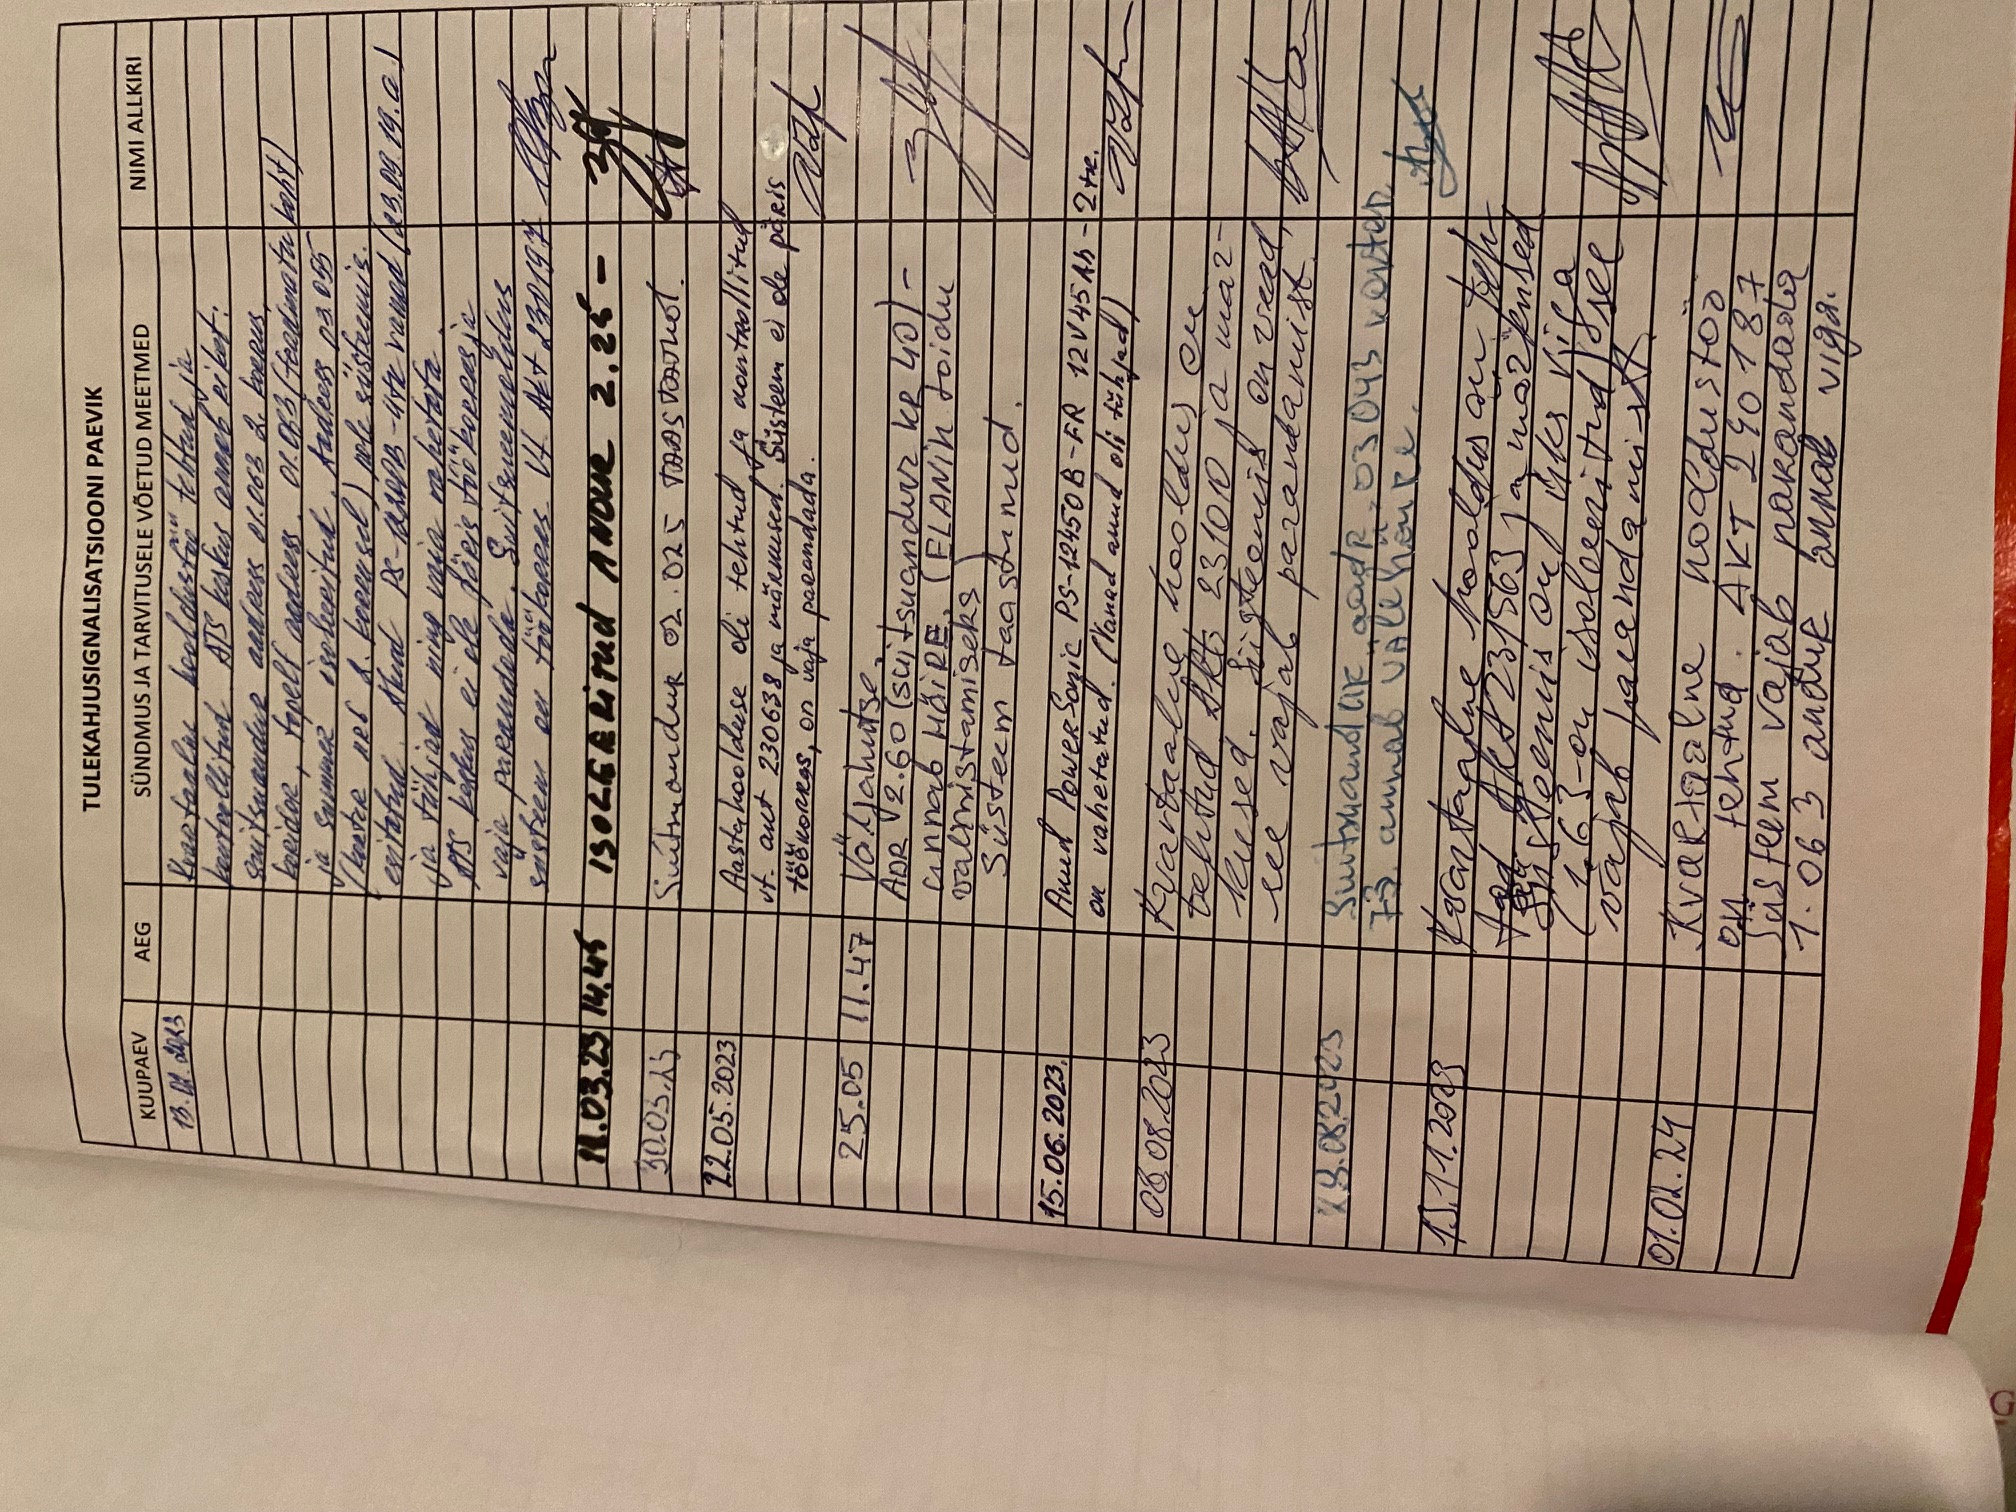 TULEKAHJUSIGNALISATSIOONI PAEVIK
KUUPAEV AEG SÜNDMUS JA TARVITUSELE VÕETUD MEETMED NIMI ALLKIRI
Kvartaalne hooldustöö tehtud ja
kontrollitud. ATS keskus annab riket:
suitsuandur aadress 01.063 2. korrus,
koridor, topelt aadress. 01.053 (teadmata koht)
ja summer isoleeritud. Aadress 03.055
pole süsteemis.
Akud PS-12120B-4tk vanad (23.09.19.a)
ja tühjad ning vaja vahetata.
ATS keskus ei ole päris töökorras ja
vaja parandada. Suitsueemaldus
süsteem on töökorras. Vt. Akt 230197
11.03.23 14.45 ISOLEERITUD ANDUR 2.25 -
30.03.23 Suitsuandur 02.025 TAASTATUD.
22.05.2023 Aastahoolduse oli tehtud ja kontrollitud
vt. akt 230638 ja märkused. Süsteem ei ole päris
töökorras, on vaja parendada.
25.05 11.47 Väljalülitse
ADR 2.60 (suitsuandur KR 40) -
annab HÄIRE. (ELANIK toidu
valmistamiseks)
Süsteem taastnud.
15.06.2023. Akud PowerSonic PS-12450B-FR 12V45Ah - 2tk.
on vahetatud. (Vanad akud oli tühjad)
08.08.2023 Kvartaalne hooldus on
tehtud Akt 231010 ja mär-
kused. Süsteemis on vead,
see vajab parandamist.
23.08.2023 Suitsuandur aadr. 03043 korter
73. annab valehäire.
13.11.2023 Kvartaalne hooldus on teh-
tud Akt 231563 ja märkused
Süsteemis on üks viga
(1.63 - on isoleeritud) see
vajab parandamist
01.02.24 Kvartaalne hooldustöö
on tehtud. AKT 240187
Süsteem vajab parandada
1.063 andur annab viga.